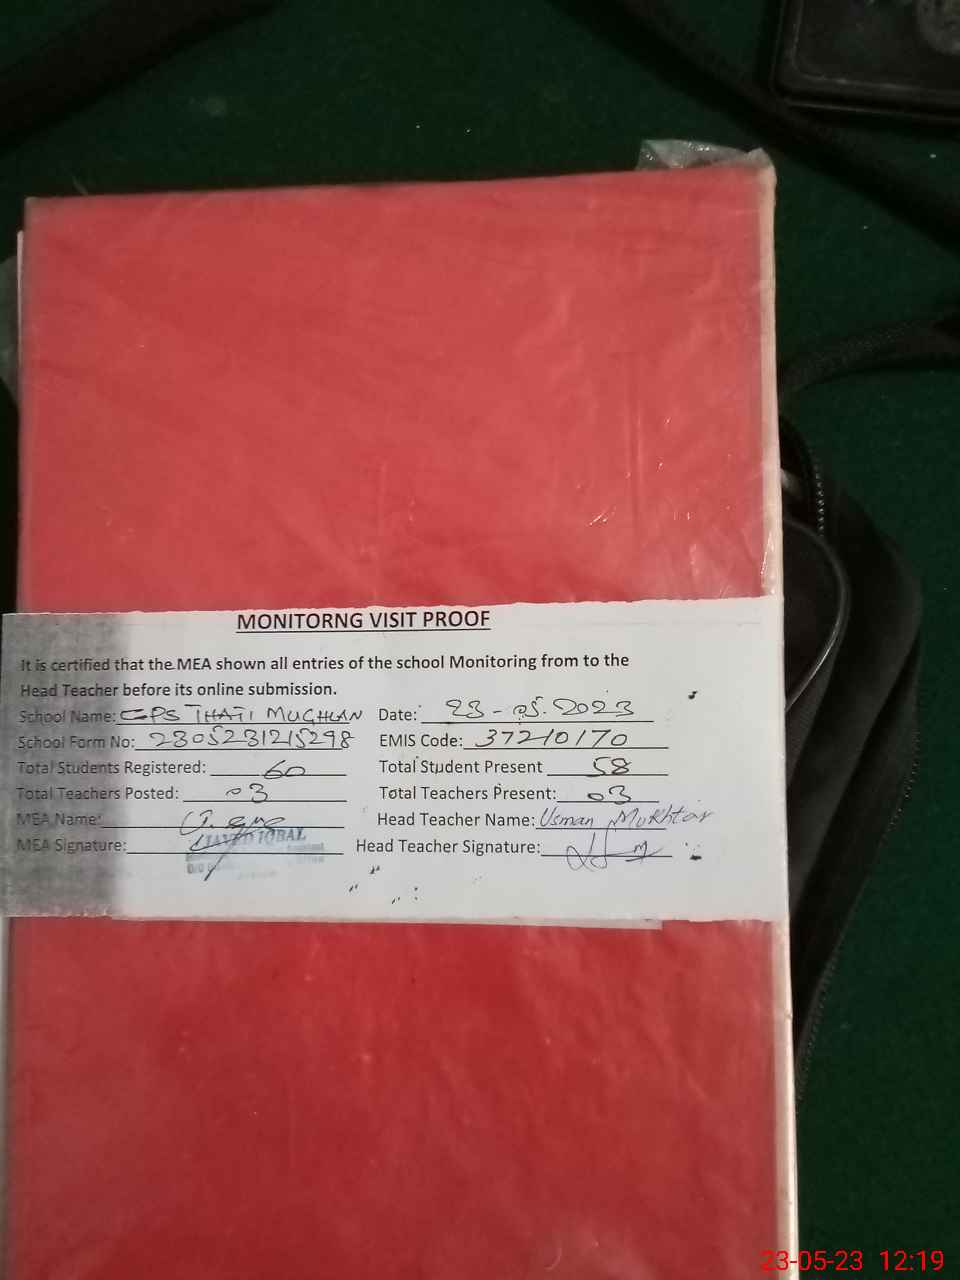 MONITORNG VISIT PROOF
It is certified that the MEA shown all entries of the school Monitoring from to the
Head Teacher before its online submission.
School Name: GPS THATI MUGHLAN Date: 23-05-2023
School Form No: 2305231215298 EMIS Code: 37210170
Total Students Registered: 60 Total Student Present 58
Total Teachers Posted: 03 Total Teachers Present: 03
MEA Name: Head Teacher Name: Usman Mukhtar
MEA Signature: JAVED IQBAL Head Teacher Signature:
23-05-23 12:19